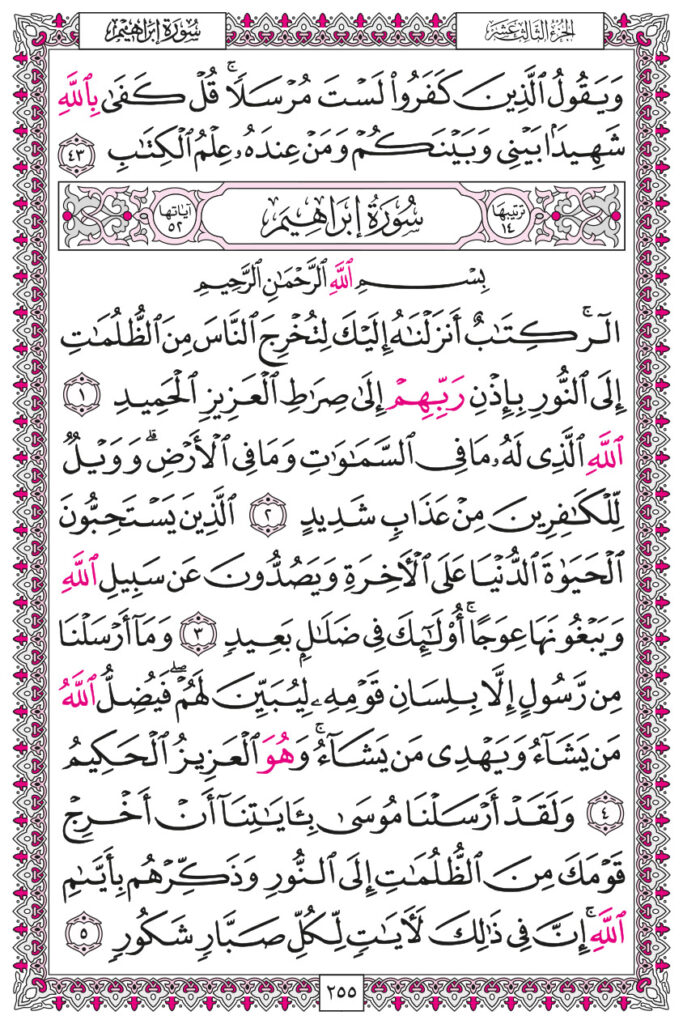 سُورَةُ إِبْرَاهِيمَ
الجُزْءُ الثَّالِثَ عَشَرَ
وَيَقُولُ ٱلَّذِينَ كَفَرُوا۟ لَسْتَ مُرْسَلًا ۚ قُلْ كَفَىٰ بِٱللَّهِ
شَهِيدًۢا بَيْنِى وَبَيْنَكُمْ وَمَنْ عِندَهُۥ عِلْمُ ٱلْكِتَٰبِ ٤٣
تَرتيبها ١٤ سُورَةُ إِبْرَاهِيمَ آيَاتُهَا ٥٢
بِسْمِ ٱللَّهِ ٱلرَّحْمَٰنِ ٱلرَّحِيمِ
الٓر ۚ كِتَٰبٌ أَنزَلْنَٰهُ إِلَيْكَ لِتُخْرِجَ ٱلنَّاسَ مِنَ ٱلظُّلُمَٰتِ
إِلَى ٱلنُّورِ بِإِذْنِ رَبِّهِمْ إِلَىٰ صِرَٰطِ ٱلْعَزِيزِ ٱلْحَمِيدِ ١
ٱللَّهِ ٱلَّذِى لَهُۥ مَا فِى ٱلسَّمَٰوَٰتِ وَمَا فِى ٱلْأَرْضِ ۗ وَوَيْلٌ
لِّلْكَٰفِرِينَ مِنْ عَذَابٍ شَدِيدٍ ٢ ٱلَّذِينَ يَسْتَحِبُّونَ
ٱلْحَيَوٰةَ ٱلدُّنْيَا عَلَى ٱلْءَاخِرَةِ وَيَصُدُّونَ عَن سَبِيلِ ٱللَّهِ
وَيَبْغُونَهَا عِوَجًا ۚ أُو۟لَٰٓئِكَ فِى ضَلَٰلٍۭ بَعِيدٍ ٣ وَمَآ أَرْسَلْنَا
مِن رَّسُولٍ إِلَّا بِلِسَانِ قَوْمِهِۦ لِيُبَيِّنَ لَهُمْ ۖ فَيُضِلُّ ٱللَّهُ
مَن يَشَآءُ وَيَهْدِى مَن يَشَآءُ ۚ وَهُوَ ٱلْعَزِيزُ ٱلْحَكِيمُ
٤ وَلَقَدْ أَرْسَلْنَا مُوسَىٰ بِـَٔايَٰتِنَآ أَنْ أَخْرِجْ
قَوْمَكَ مِنَ ٱلظُّلُمَٰتِ إِلَى ٱلنُّورِ وَذَكِّرْهُم بِأَيَّىٰمِ
ٱللَّهِ ۚ إِنَّ فِى ذَٰلِكَ لَءَايَٰتٍ لِّكُلِّ صَبَّارٍ شَكُورٍ ٥
٢٥٥